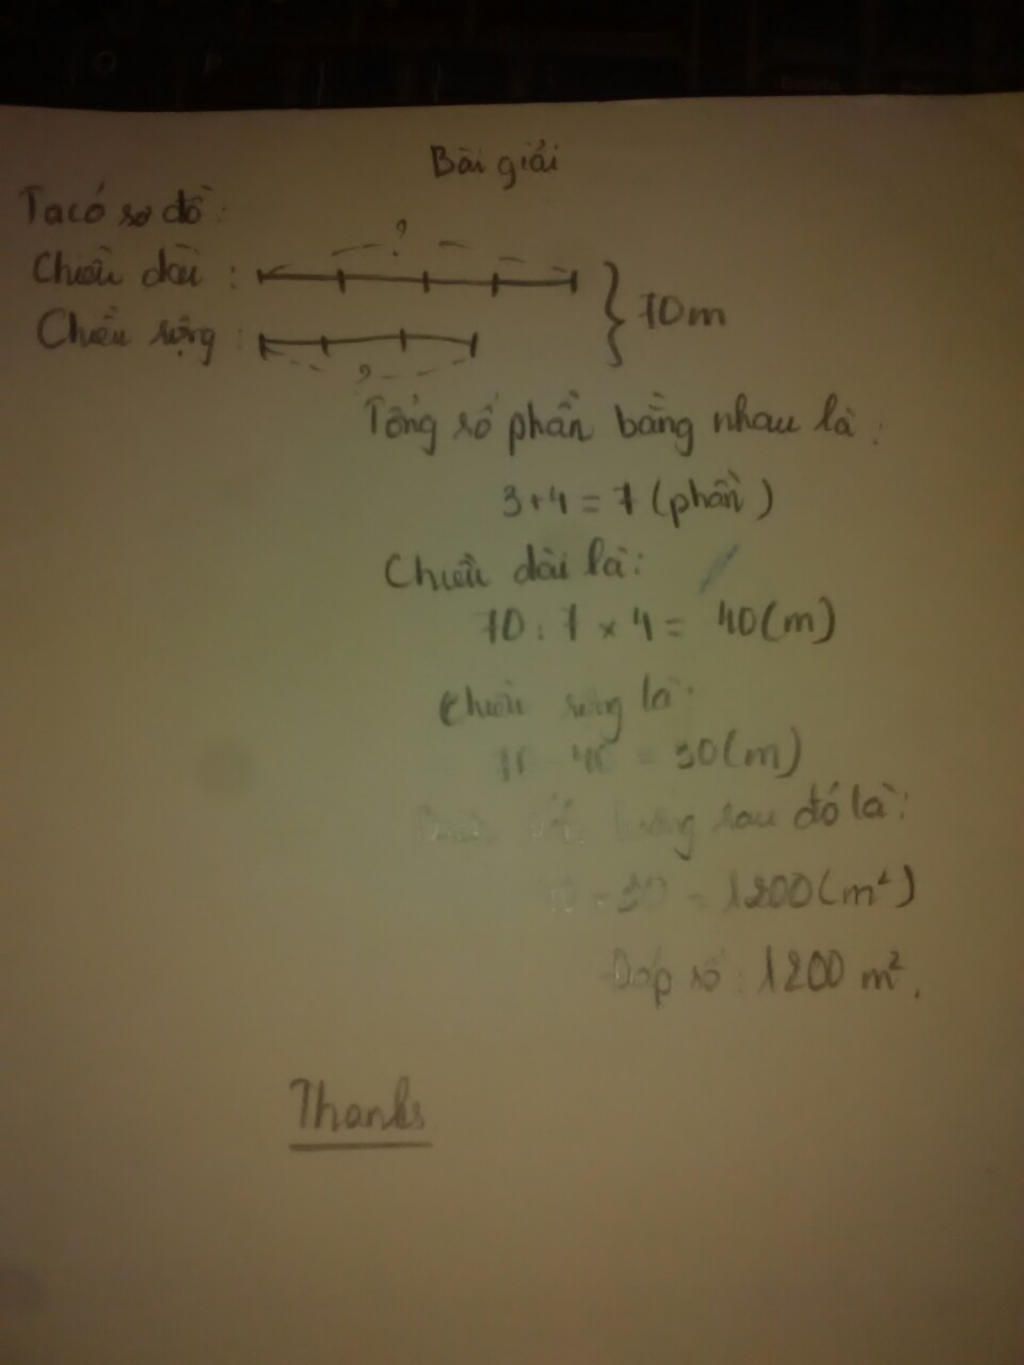 Bài giải
Ta có sơ đồ:
?
Chiều dài :
70m
Chiều rộng :
?
Tổng số phần bằng nhau là :
3+4=7 (phần)
Chiều dài là:
70 : 7 × 4 = 40(m)
Chiều rộng là:
= 30(m)
sau đó là:
30 = 1200(m²)
Đáp số : 1200 m².
Thanks